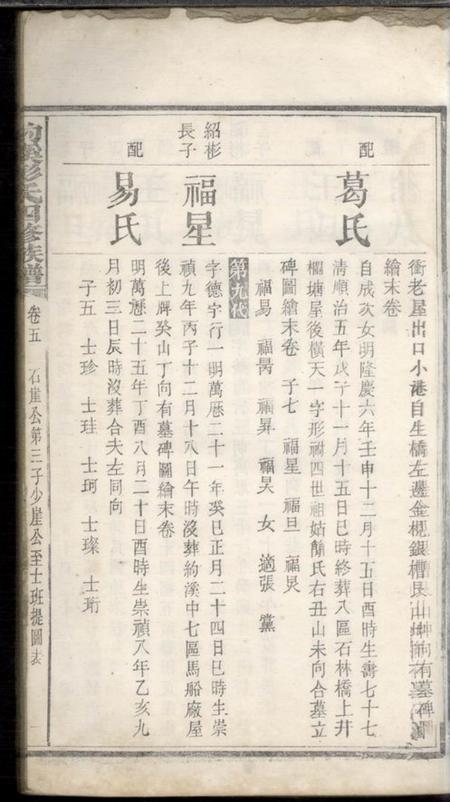 衝老屋出口小港自生橋左邊金榥銀槽艮山坤向有墓碑圖
繪末卷
配
葛氏
自成次女明隆慶六年壬申十二月十五日酉時生壽七十七
清順治五年戊子十一月十五日巳時終葬八區石林橋上井
欄塘屋後橫天一字形祔四世祖姑簡氏右丑山未向合墓立
碑圖繪末卷 子七 福星 福旦 福炅
福易 福昺 福昇 福昊 女 適張 黨
第九代
紹彬
長子
福星
字德宇行一明萬厯二十一年癸巳正月二十四日巳時生崇
禎九年丙子十二月十八日午時沒葬約溪中七區馬船廠屋
後上牌癸山丁向有墓碑圖繪末卷
配
易氏
明萬厯二十五年丁酉八月二十日酉時生崇禎八年乙亥九
月初三日辰時沒葬合夫左同向
子五 士珍 士珪 士珂 士璨 士珩
約溪彭氏四修族譜
卷五 石崖公第三子少崖公至士班提圖表 一